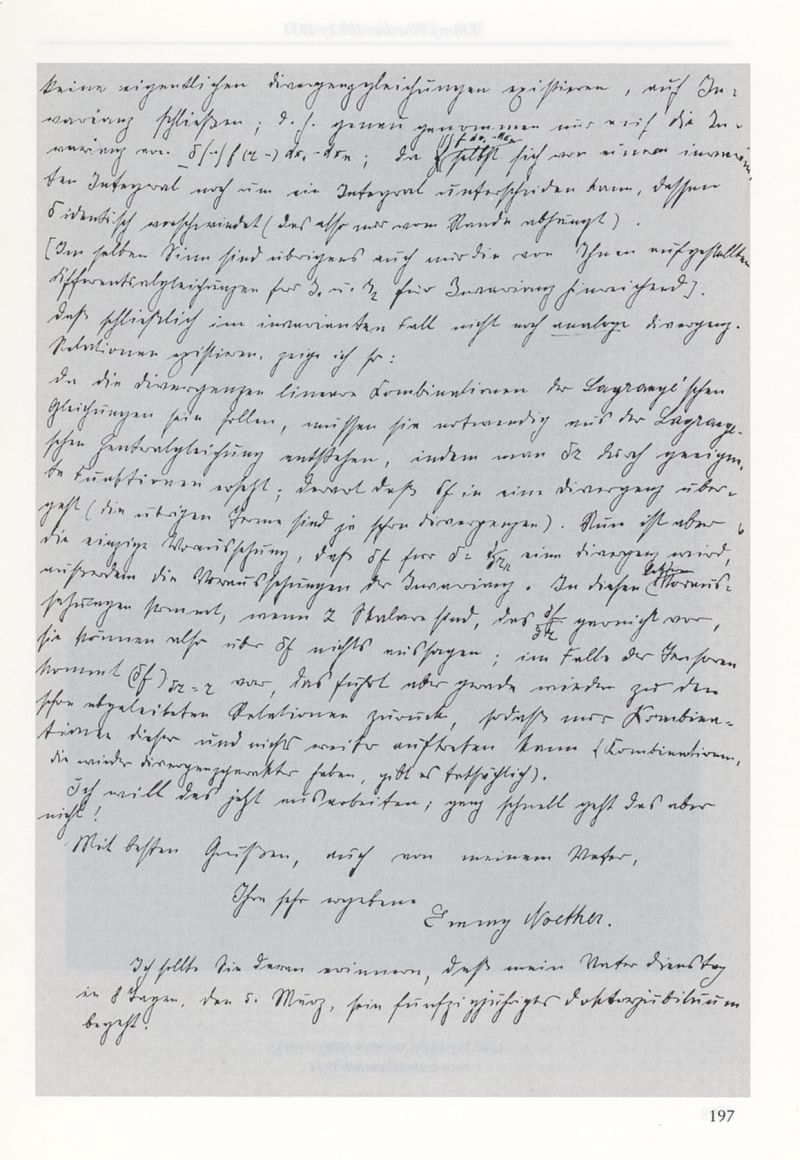 keine eigentlichen Divergenzgleichungen existieren, auf In-
varianz schließen; d. h. genau genommen nur auf die In-
varianz von δ∫…∫ f(z…) dx₁…dxₙ; da ∫…∫ f dx₁…dxₙ selbst sich von einem invarian-
ten Integral noch um ein Integral unterscheiden kann, dessen
δ identisch verschwindet (das also nur vom Rande abhängt).
[Im selben Sinn sind übrigens auch nur die von Ihnen aufgestellten
Differentialgleichungen für I₁ u. I₂ für Invarianz hinreichend].
Daß schließlich im invarianten Fall nicht noch analoge Divergenz-
Relationen existieren, zeige ich so:
Da die Divergenzen lineare Kombinationen der Lagrange'schen
Gleichungen sein sollen, müssen sie notwendig aus der Lagrange-
schen Zentralgleichung entstehen, indem man δz durch geeigne-
te Funktionen ersetzt; derart daß δf in eine Divergenz über-
geht (die übrigen Terme sind ja schon Divergenzen). Nun ist aber
die einzige Voraussetzung, daß δf für δz = eine Divergenz wird,
außerdem die Voraussetzungen der Invarianz. In diesen letzten Voraus-
setzungen kommt, wenn z Skalare sind, das ∂f/∂z garnicht vor,
sie können also über δf nichts aussagen; im Falle der Tensoren
kommt (δf) δz = z vor, das führt aber gerade wieder zu den
schon abgeleiteten Relationen zurück, sodaß nur Kombina-
tionen dieser und nichts weiter auftreten kann (Kombinationen,
die wieder Divergenzcharakter haben, gibt es tatsächlich).
Ich will das jetzt ausarbeiten; ganz schnell geht das aber
nicht!
Mit besten Grüßen, auch von meinem Vater,
Ihre sehr ergebene
Emmy Noether.
Ich sollte Sie daran erinnern, daß mein Vater Dienstag
in 8 Tagen, den 5. März, sein fünfzigjähriges Doktorjubiläum
begeht.
197